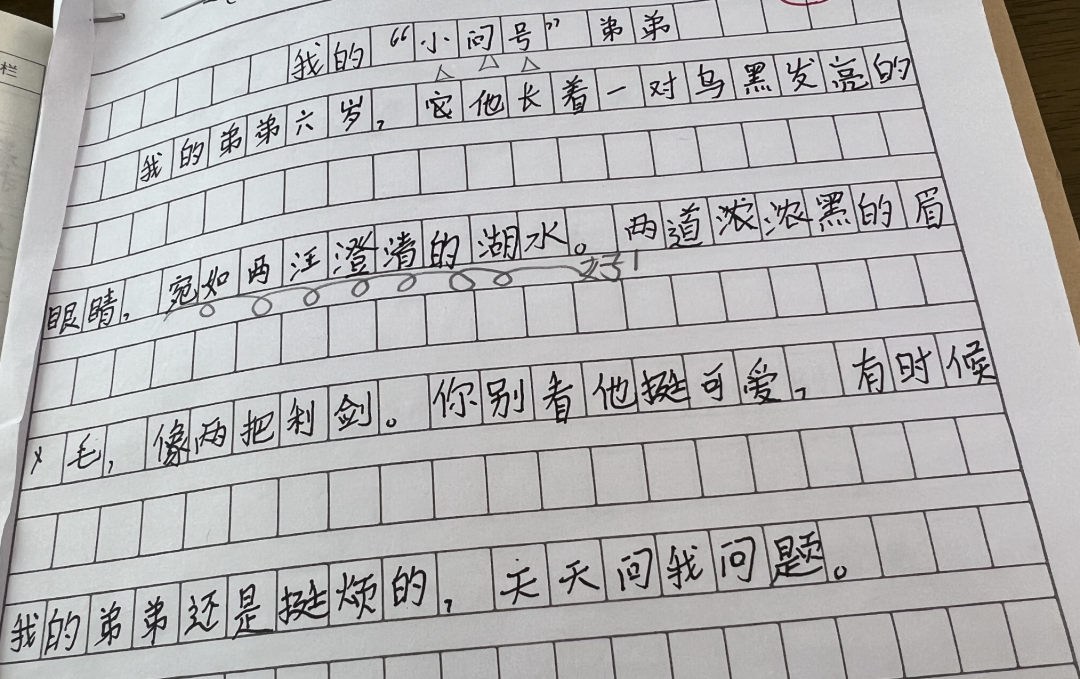 栏
我的“小问号”弟弟
我的弟弟六岁，他长着一对乌黑发亮的
眼睛，宛如两汪澄清的湖水。两道浓浓黑的眉
好
毛，像两把利剑。你别看他挺可爱，有时候
我的弟弟还是挺烦的，天天问我问题。